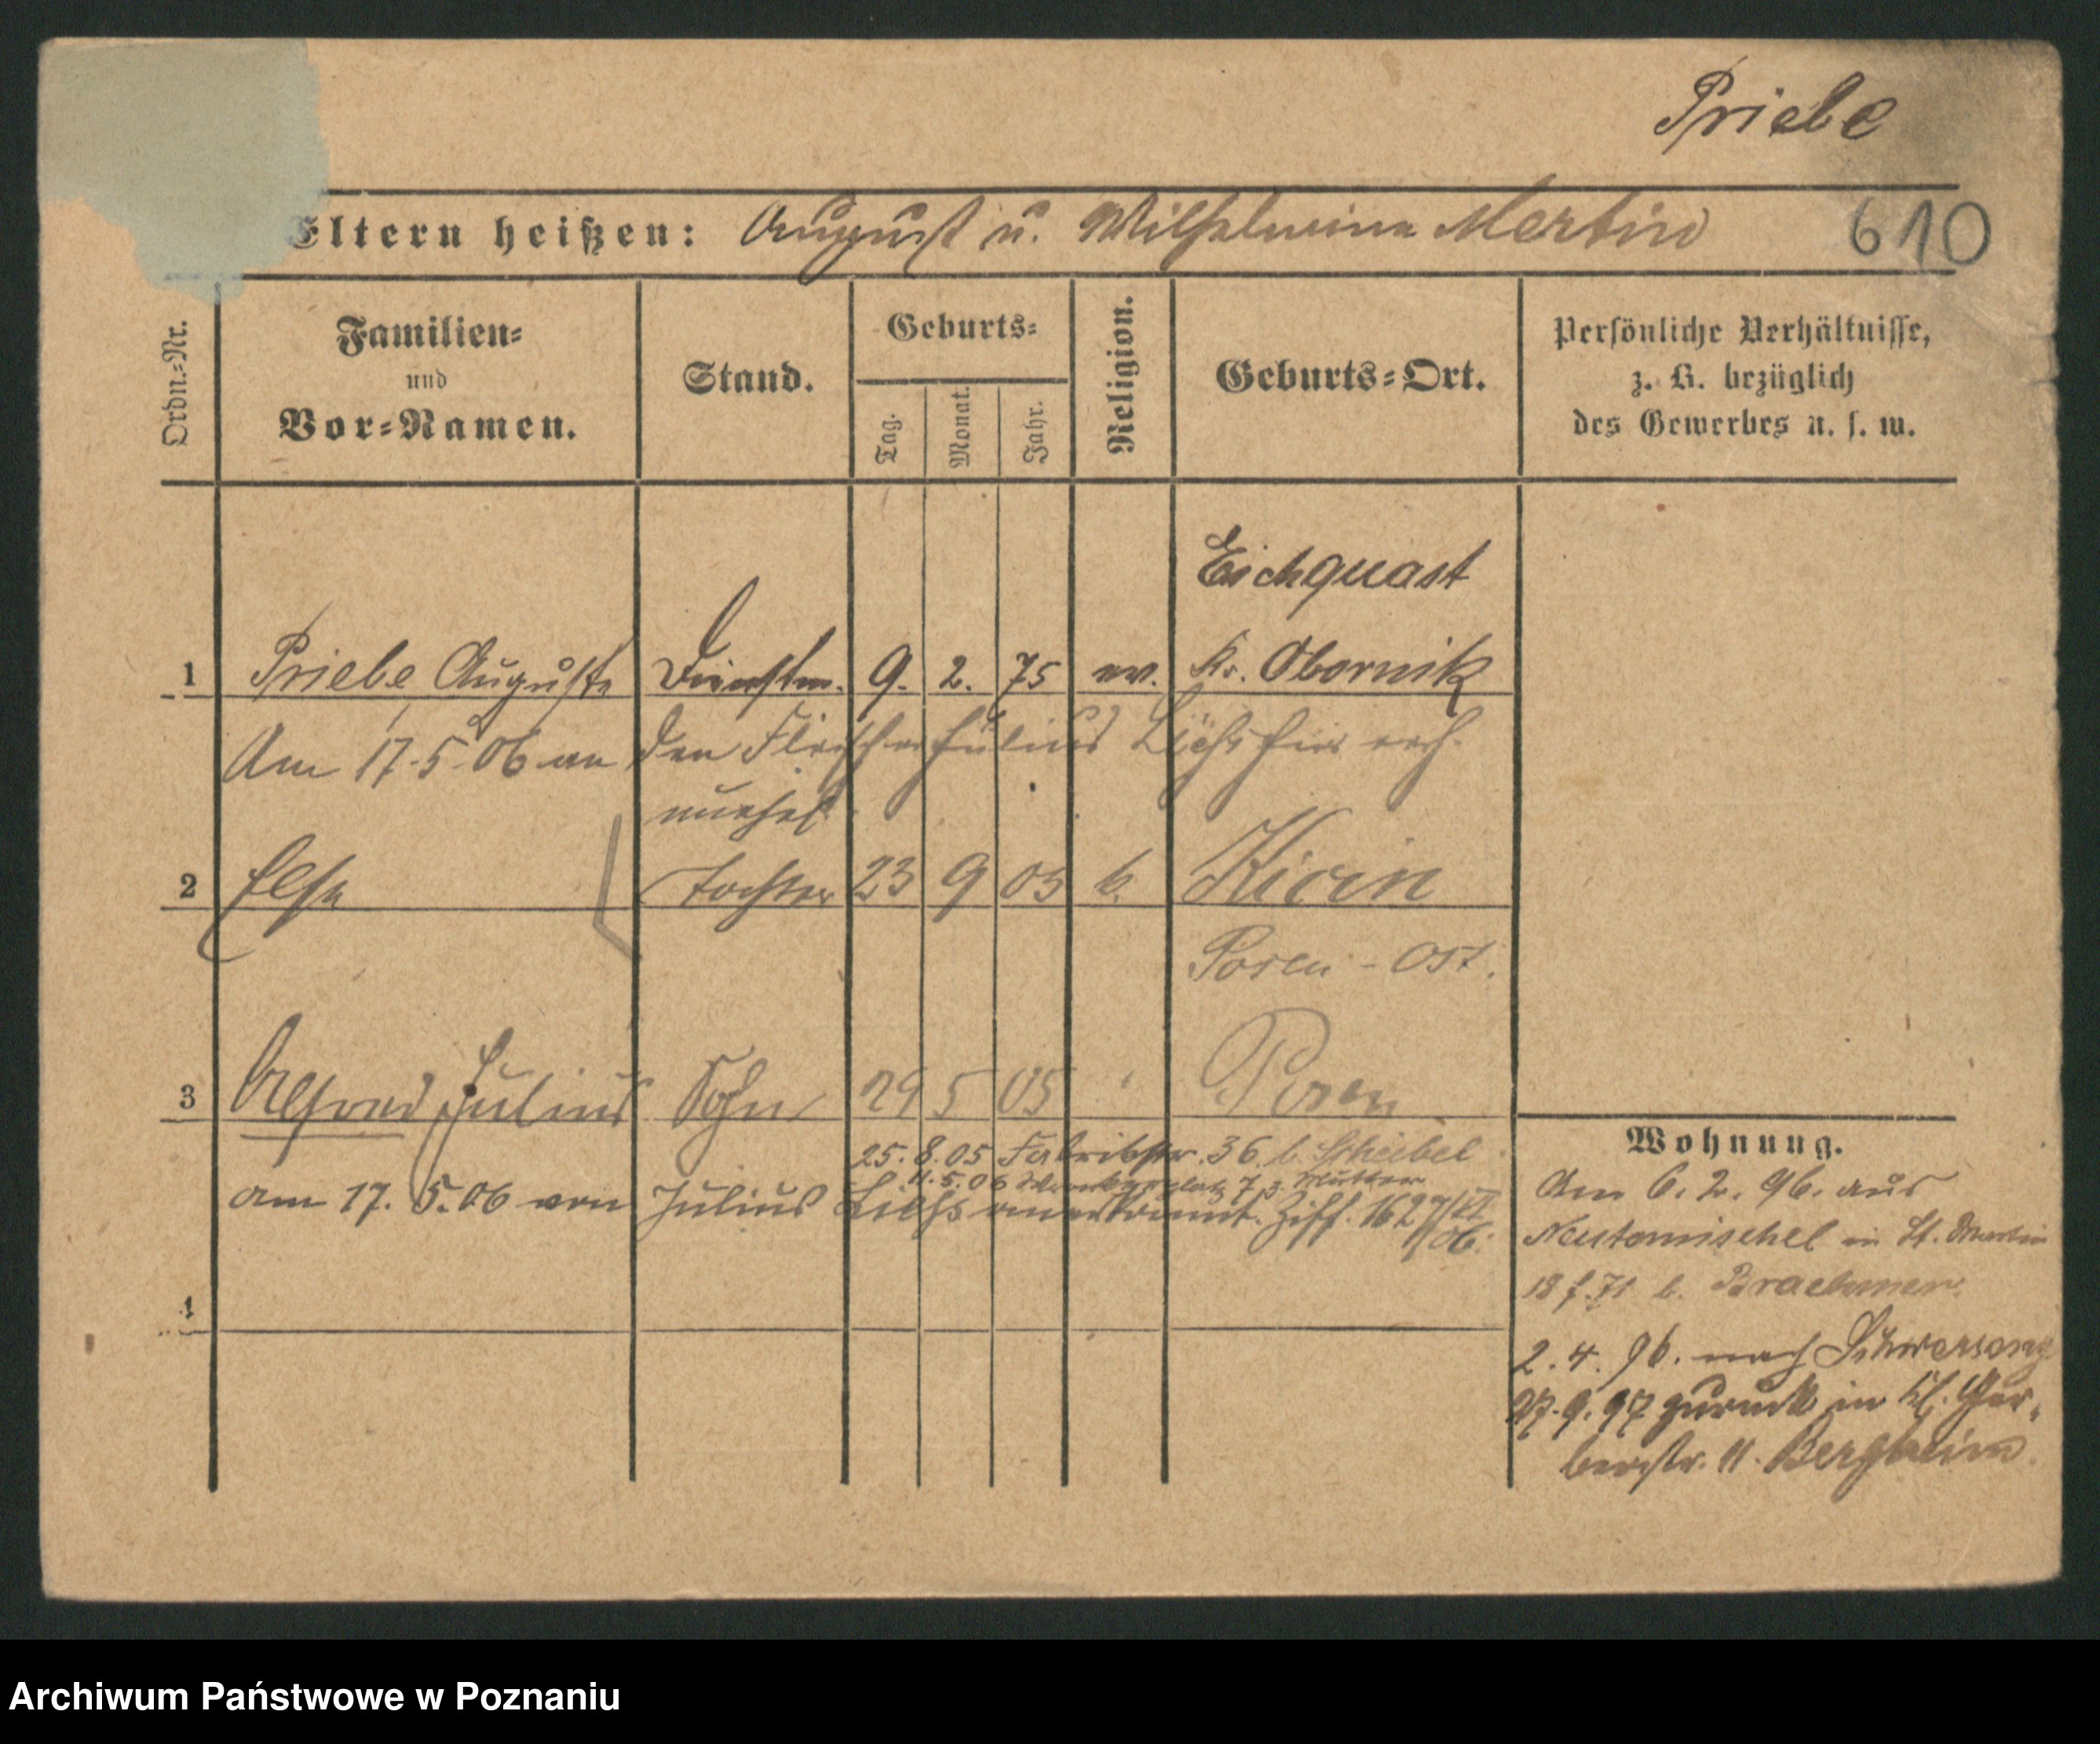 Priebe
Eltern heißen: August u. Wilhelmine Mertin
610
Ordn.-Nr.
Familien-
und
Vor-Namen.
Stand.
Geburts-
Tag.
Monat.
Jahr.
Religion.
Geburts-Ort.
Persönliche Verhältnisse,
z. B. bezüglich
des Gewerbes u. s. w.
Eichquast
1 Priebe Auguste Dienstm. 9. 2. 75 ev. Kr. Obornik
Am 17.5.06 an den Fleischer Julius hier
2 Else Tochter 23 9 03 Kicin
Posen-Ost.
3 Alfred Julius Sohn 29 5 05 " Posen
25.8.05 Fabrikstr. 36 b. Scheibel
11.5.06 7 z. Mutter
am 17.5.06 von Julius Liehs anerkannt. Ziff. 1627/VI
06.
4
Wohnung.
Am 6.2.96. aus
Neutomischel in St. Martin
18 b. Braehmer.
2.4.96. nach Schwersenz
27.9.97 zurück in Kl. Ger-
berstr. 11. Bergheim
Archiwum Państwowe w Poznaniu